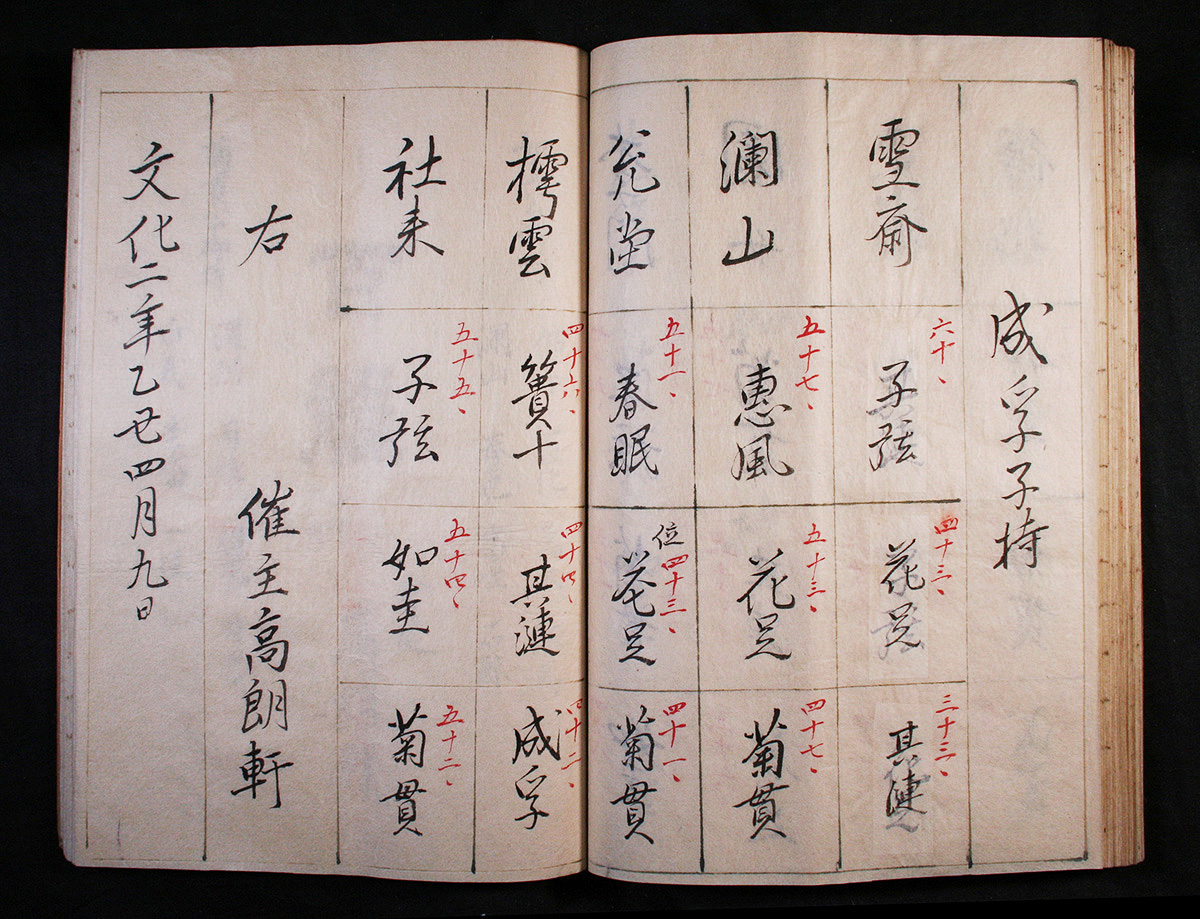 成孚子持
雪斎
六十、
子弦
四十三、
花足
三十三、
其漣
瀾山
五十七、
恵風
五十三、
花足
四十七、
菊貫
允堂
五十一、
春眠
位四十三、
花足
四十一、
菊貫
樗雲
四十六、
簣十
四十四、
其漣
四十二、
成孚
社耒
五十五、
子弦
五十四、
如圭
五十二、
菊貫
右
催主高朗軒
文化二年乙丑四月九日